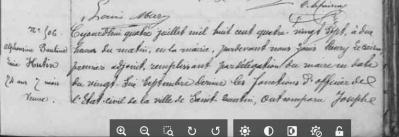 Louis Mary
N° 506.
Alphonsine Barbare
Hutin
74 ans 7 mois
Veuve.
Aujourd'hui quatre juillet mil huit cent quatre-vingt sept, à dix
heures du matin, en la mairie, pardevant nous Louis Mary
premier adjoint, remplissant par délégation du maire en date
du vingt Septembre dernier les fonctions d'officier de
l'Etat-civil de la ville de Saint-Quentin, Ont comparu Joseph